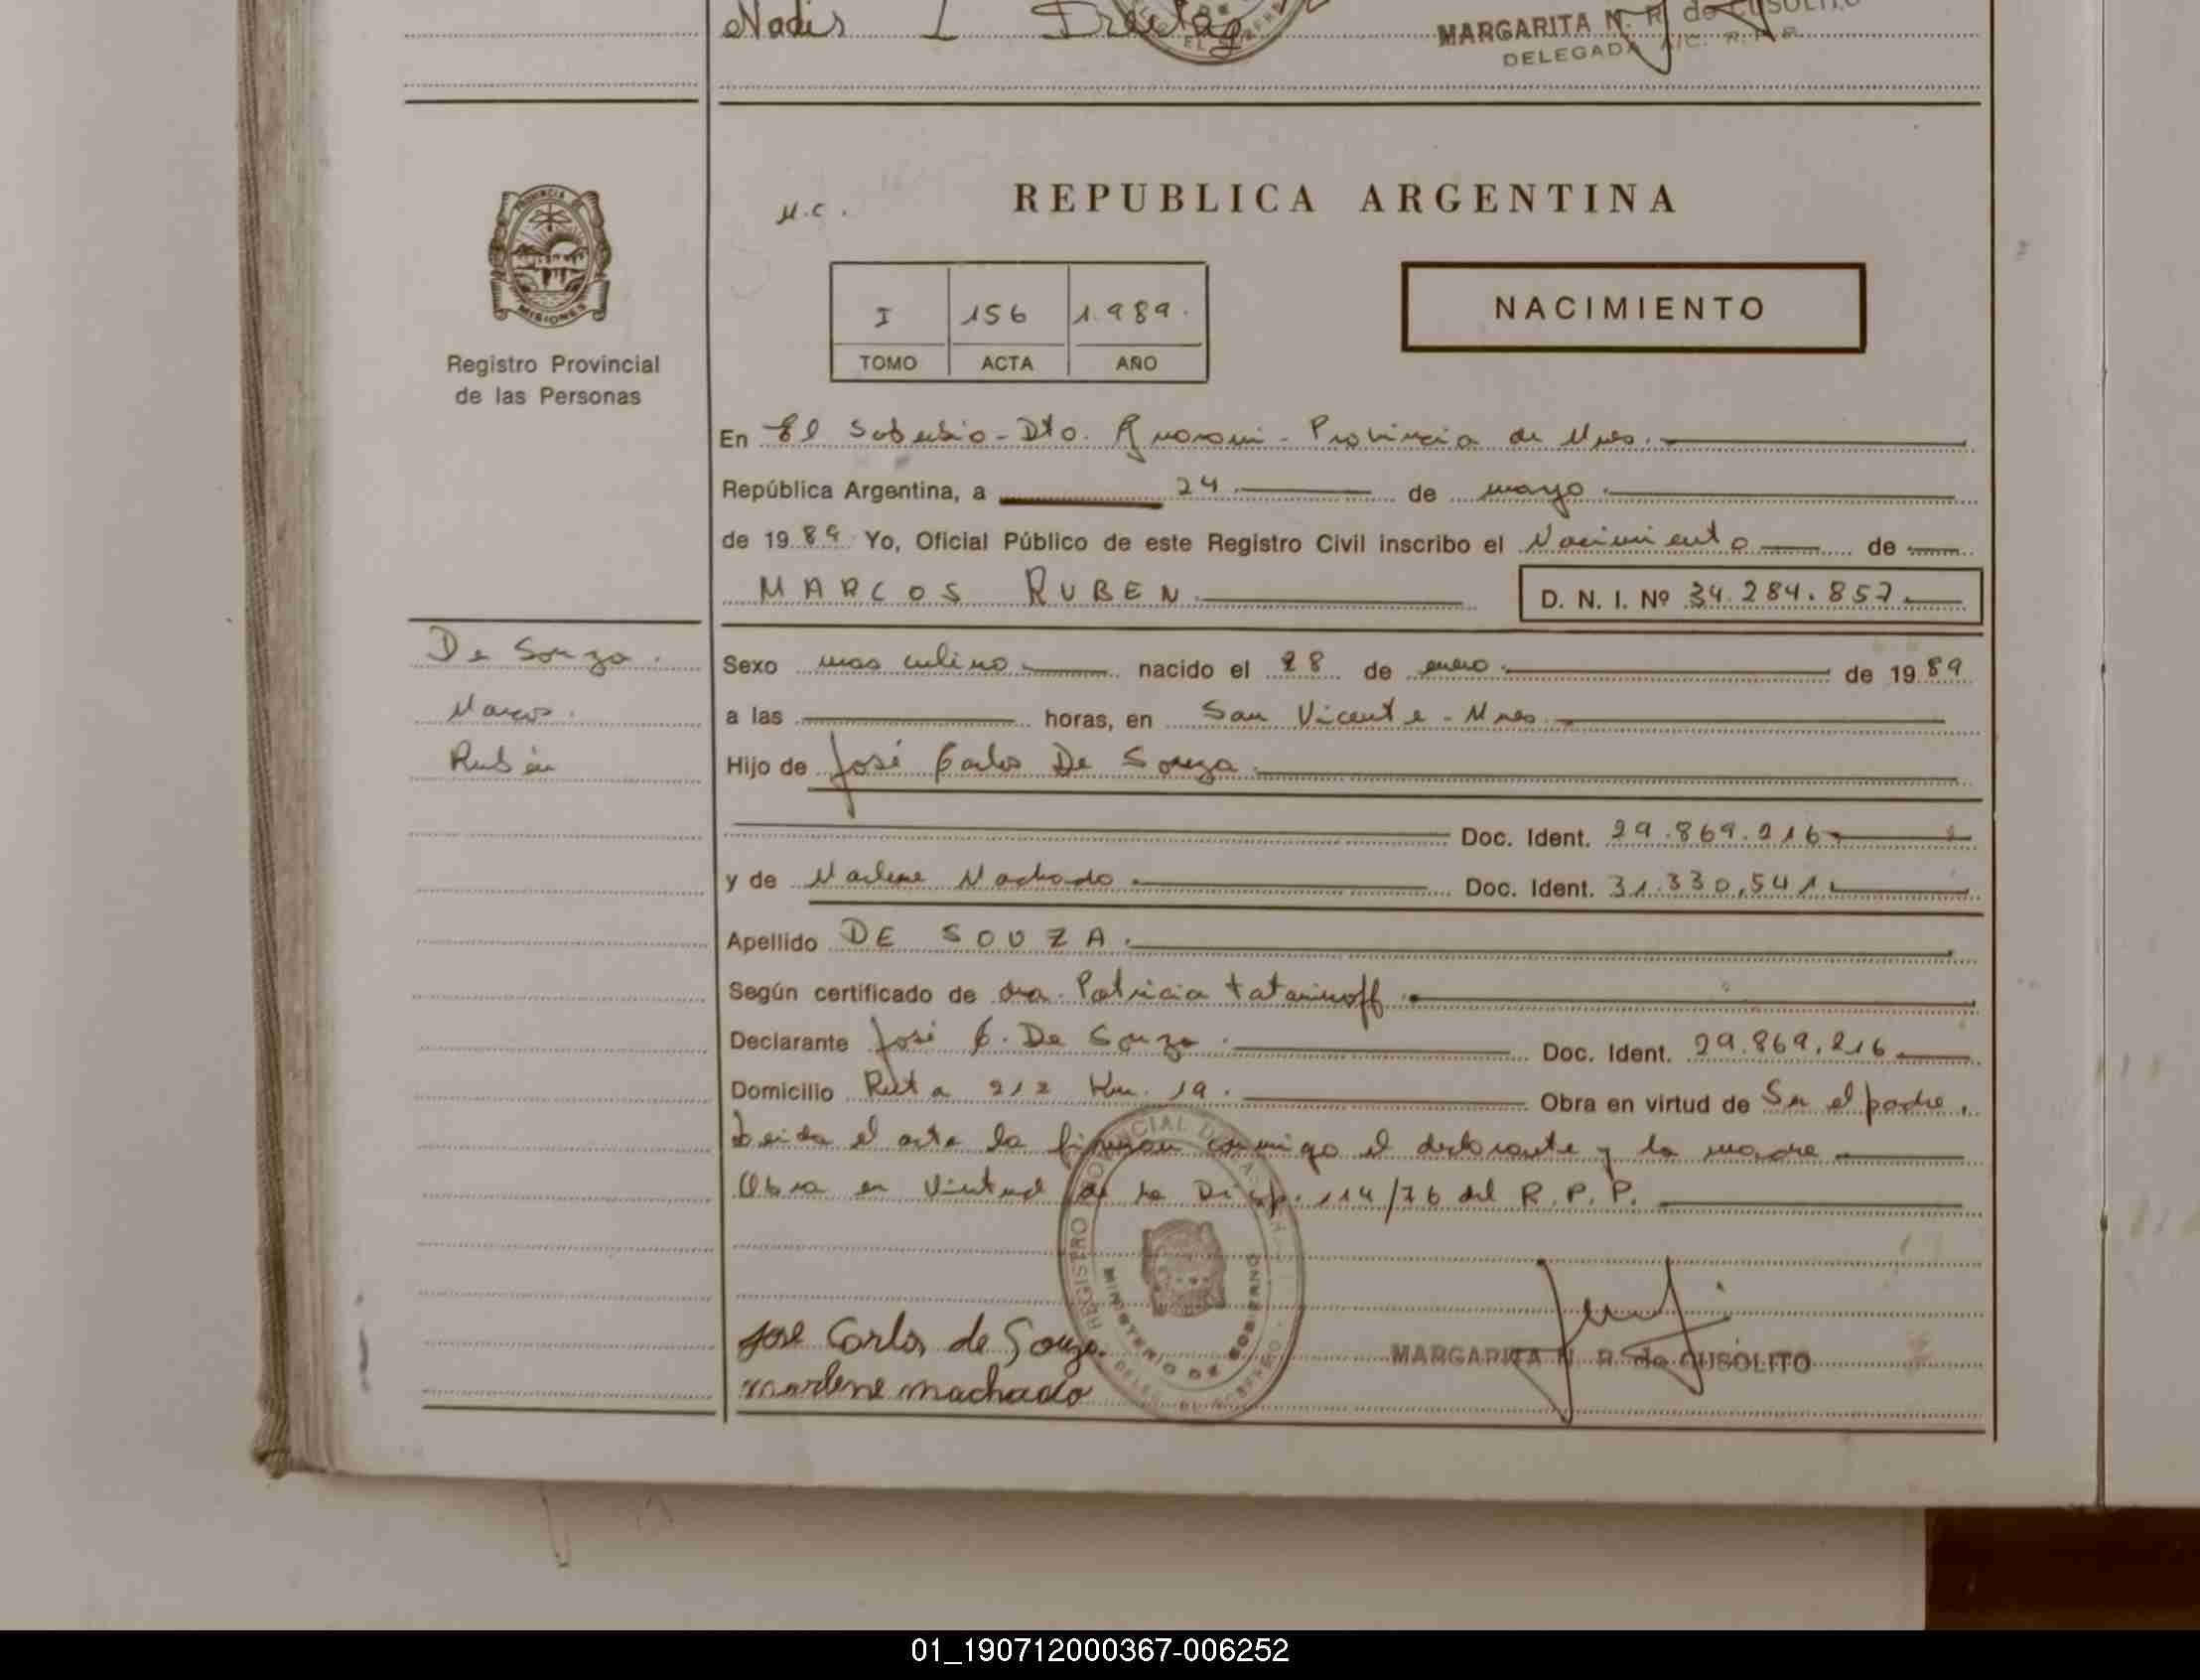 Nadis L Freitag
MARGARITA N. R. de CUSOLITO
DELEGADA A/C. R.P.P.
PROVINCIA DE
MISIONES
Registro Provincial
de las Personas
M.C.
REPUBLICA ARGENTINA
I 156 1.989.
TOMO ACTA AÑO
NACIMIENTO
En El Soberbio - Dto. Guaraní - Provincia de Mnes.
República Argentina, a 24 de mayo
de 1989 Yo, Oficial Público de este Registro Civil inscribo el Nacimiento de
MARCOS RUBEN
D. N. I. Nº 34.284.857.
De Souza.
Marcos.
Rubén
Sexo masculino nacido el 28 de enero de 1989
a las horas, en San Vicente - Mnes.
Hijo de José Carlos De Souza
Doc. Ident. 29.869.216
y de Marlene Machado Doc. Ident. 31.330.541
Apellido DE SOUZA.
Según certificado de dra. Patricia Tatarinoff.
Declarante José C. De Souza. Doc. Ident. 29.869.216
Domicilio Ruta 212 Km. 19. Obra en virtud de Ser el padre.
Leida el acta la firman conmigo el declarante y la madre
Obra en Virtud de la Disp. 114/76 del R.P.P.
REGISTRO PROVINCIAL DE LAS PERSONAS
MINISTERIO DE GOBIERNO
Jose Carlos de Souza.
marlene machado
MARGARITA N. R. de CUSOLITO
01_190712000367-006252